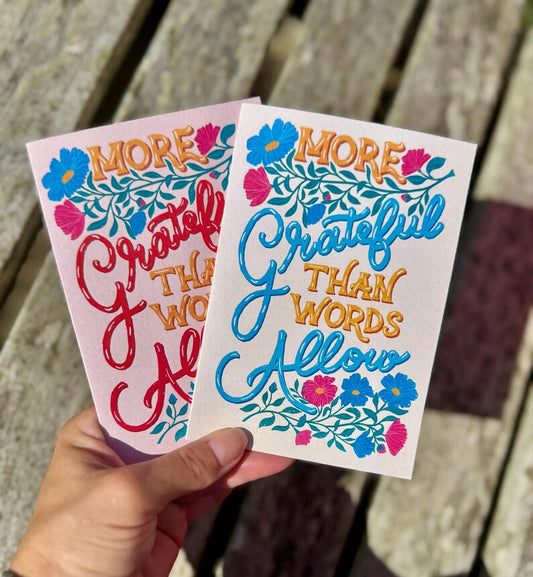 MORE
Grateful
THAN
WORDS
Allow
MORE
Grateful
THA
WO
A